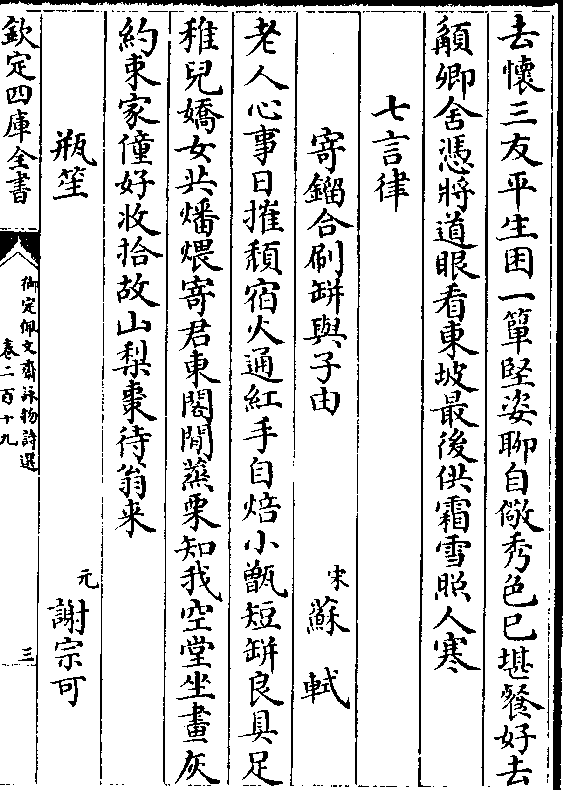 去懷三友平生困一簞堅姿聊自儆秀色已堪餐好去
顧卿舍憑將道眼看東坡最後供霜雪照人寒
七言律
寄鎦合刷缾與子由 宋 蘇軾
老人心事日摧頹宿火通紅手自焙小甑短缾良具足
稚兒嬌女共燔煨寄君東閣閒蒸栗知我空堂坐畫灰
約束家僮好收拾故山梨棗待翁来
瓶笙 元 謝宗可
欽定四庫全書
御定佩文齋詠物詩選
卷二百十九
三